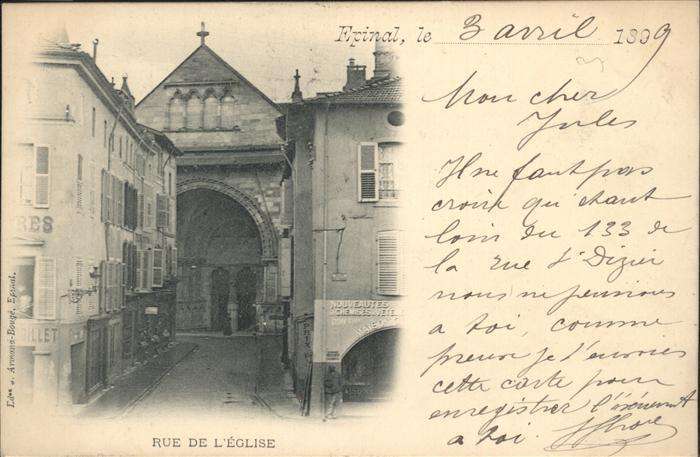 Epinal, le 3 avril 1899
Mon cher
Jules
Il ne faut pas
croire qu'étant
loin du 133 de
la rue St Dizier
nous ne pensions
a toi, comme
preuve je t'envoies
cette carte pour
enregistrer l'événement
a toi.
RES
LLET
NOUVEAUTÉS
Edes
Armans-Bougé, Epinal.
RUE DE L'ÉGLISE